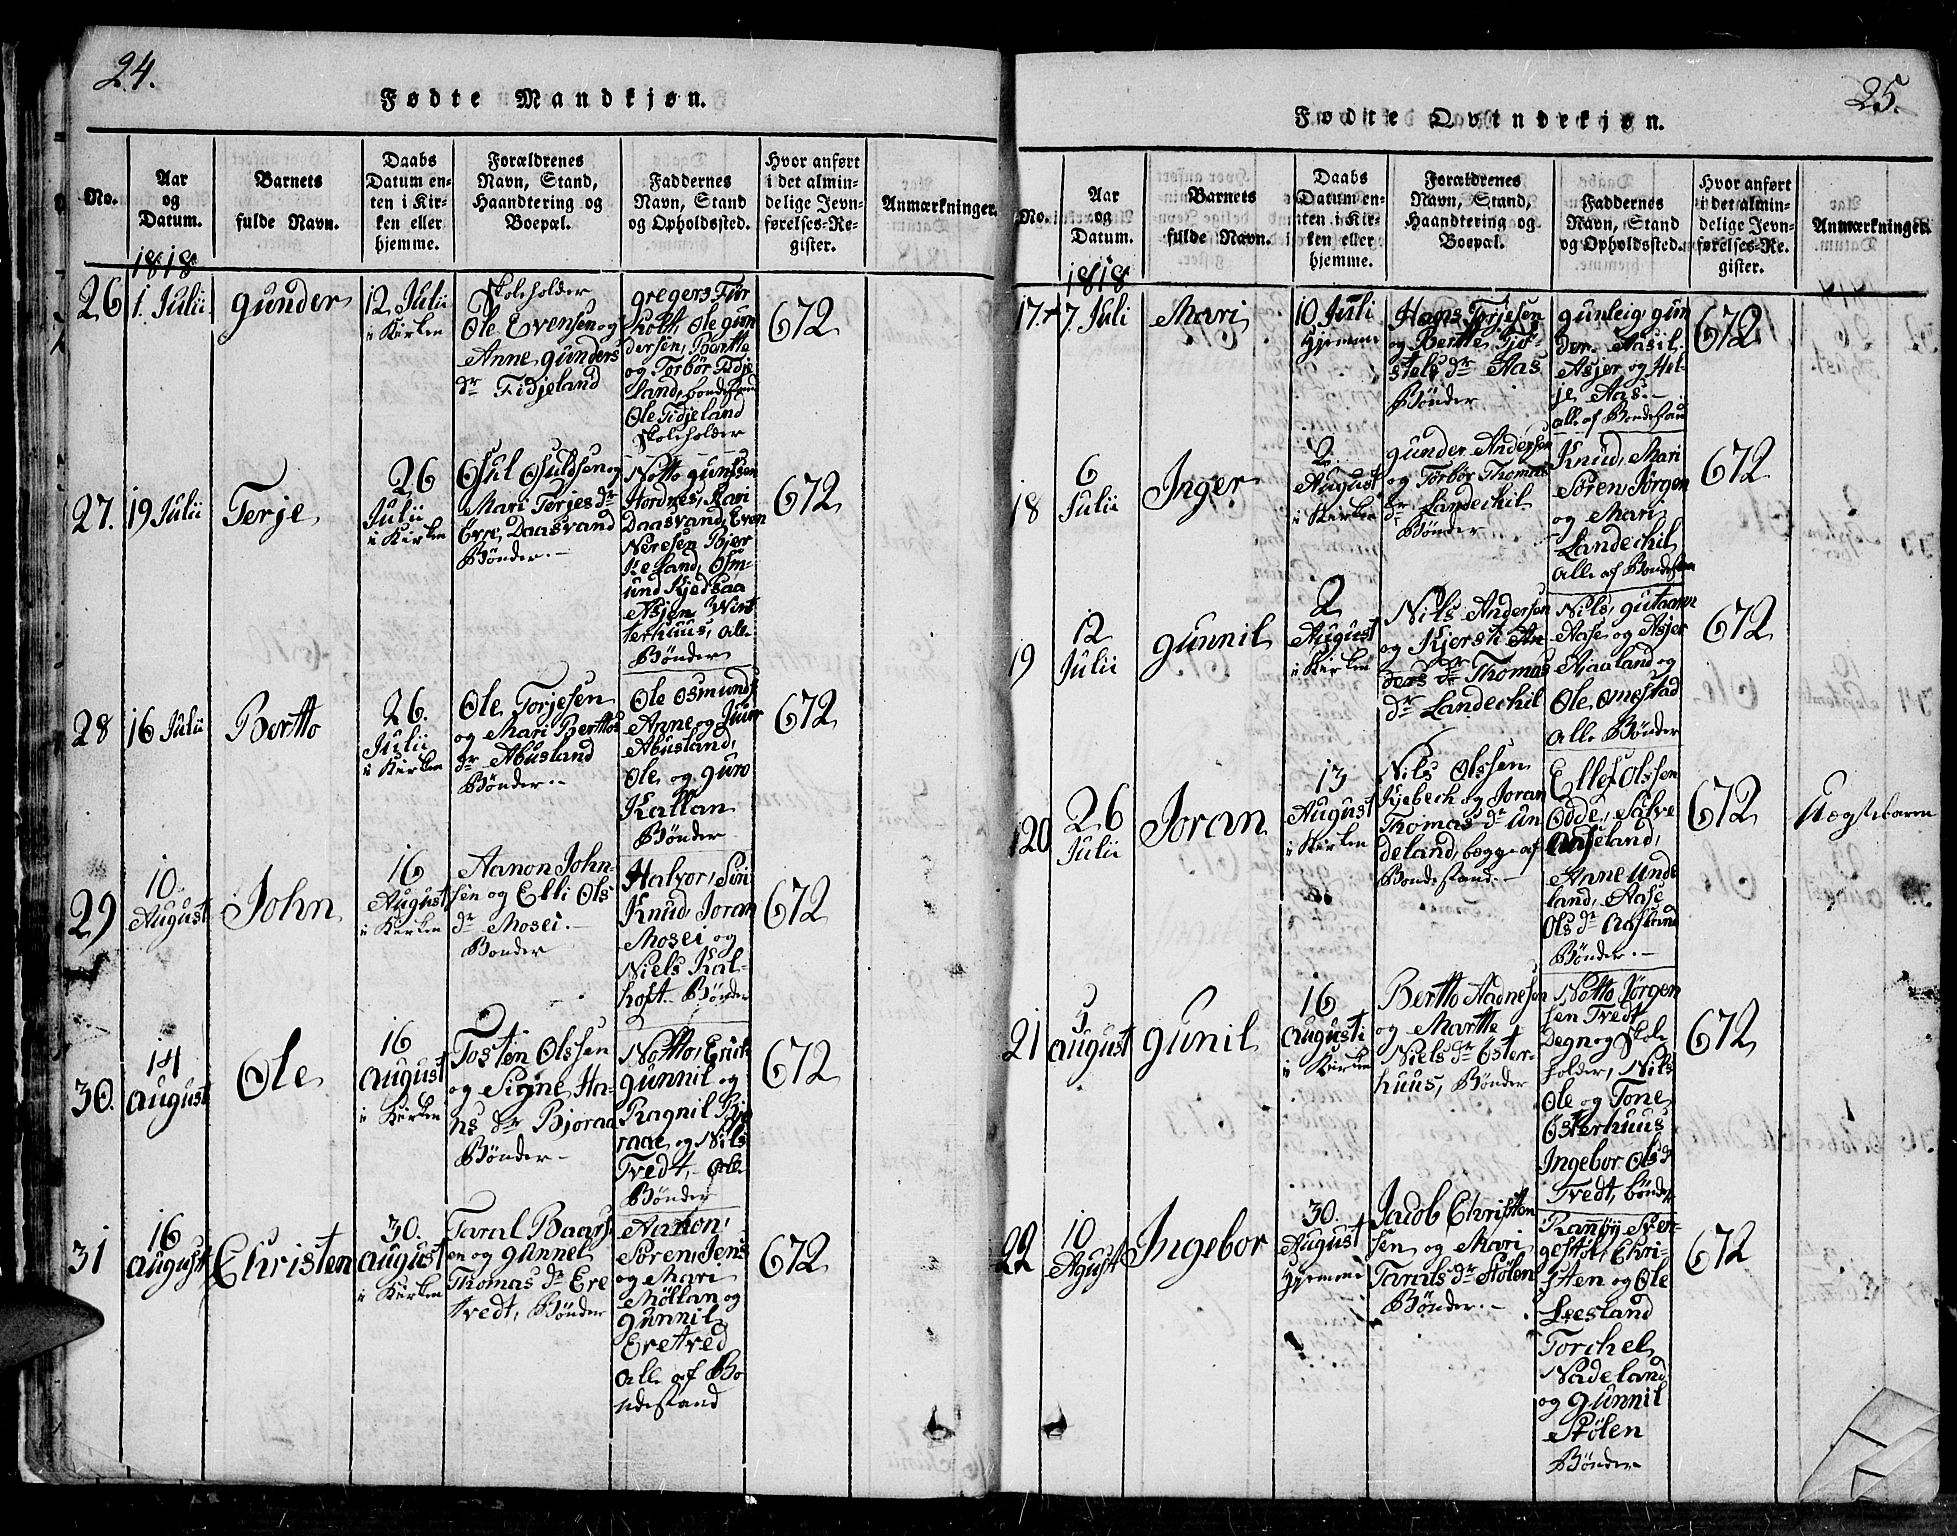 24.
Fødte Mandkjøn.
No.
Aar
og
Datum.
Barnets
fulde Navn.
Daabs
Datum en-
ten i Kir-
ken eller
hjemme.
Forældrenes
Navn, Stand,
Haandtering og
Boepæl.
Faddernes
Navn, Stand
og Opholdssted.
Hvor anført
i det almin-
delige Jevn-
førelses-Re-
gister.
Anmærkninger.
1818
26
1. Julii
Gunder
12 Julii
i Kirken
Skoleholder
Ole Evensen og
Anne Gunders
dr Fidjeland
Gregers Fiør
Holt, Ole Gun
dersen, Bertte
og Torbør Fidje
land, bondestand
Ole Fidjeland
Skoleholder
672
27.
19 Julii
Terje
26
Julii
i Kirken
Osul Osuldsen og
Mari Terjes dr
Evr. Daasvand
Bønder.-
Notto Gunssen
Hordnes, Kari
Daasvand, Even
Neresen Bjer
keland, Osm-
und Kjedsaa
Asjer Wint
terhuus, alle
Bønder
672
28
16 Julii
Bertto
26.
Julii
i Kirken
Ole Torjesen
og Mari Berttos
dr Abusland
Bønder.-
Ole Osmunds
Anne og Juur
Abusland,
Ole og Guro
Kallan
Bønder
672
29
10
August
John
16
August
i Kirken
Aanon John-
sen og Elli Ols
dr Mosei.-
Bonder
Halvor, Siri
Knud Joran
Mosei og
Niels Kal-
hoft. Bønder
672
30.
14
August
Ole
16
August
i Kirken
Tosten Olssen
og Signe Ha-
ns dr Bjoraa
Bønder-
Notto, Erick
Gunnil og
Ragnil Bjo
raae og Nils
Tvedt, Alle
Bønder
672
31
16
August
Christen
30.
August
i Kirken
Taral Baars
en og Gunnel
Thomas dr Ere
tvedt, Bønder
Aanon,
Søren, Jens
og Mari
Møllan og
Gunnil
Eretved
alle af Bo
ndestand
672
25.
Fødte Qvindekjøn.
No.
Aar
og
Datum.
Barnets
fulde Navn.
Daabs
Datum en-
ten i Kir-
ken eller
hjemme.
Forældrenes
Navn, Stand,
Haandtering og
Boepæl.
Faddernes
Navn, Stand
og Opholdssted.
Hvor anført
i det almin-
delige Jevn-
førelses-Re-
gister.
Anmærkninger.
1818
17.
7 Juli
Mari
10 Juli
Hjemme
Hans Torjesen
og Bertte Tjø-
stels dr Aas
Bønder
Gunleig, Gun
der, Aasil
Asjer og Hil-
je, Aas.-
alle af Bondestand
672
18
6
Julii
Inger
2.
August
i Kirken
Gunder Andersen
og Torbør Thomas
dr Landechil
Bønder
Knud, Mari
Søren, Jørgen
og Mari
Landechil
Alle af Bondestan
672
19
12
Julii
Gunnil
2
August
i Kirken
Nils Andersen
og Kjersti An-
ders dr Thomas
dr Landechil
Nils,
Aase og Asjer
Aaaland og
Ole Omestad
alle Bønder
672
20
26
Julii
Joran
13
August
i Kirken
Nils Olssen
Kjebech og Joran
Thomas dr Un
deland, begge af
Bondestand.-
Ellef Olssen
Odde, Salve
Aaseland,
Anne Unde
land, Aase
Ols dr Aasland
Bønder.-
672
Uægtebarn
21
5
August
Gunil
16
Augusti
i Kirken
Bertto Aadnesen
og Martte
Niels dr Øster-
huus, Bønder
Notto Jørgen
sen Tvedt
Degn og Skole
holder, Nils
Ole og Tone
Østerhuus
Ingebor Ols d
Tvedt, bønder
672
22
10
Agustt
Ingebor
30.
August
Hjemme
Jacob Christen
sen og Mari
Tarals dr Stølen
Bønder.-
Ranøy Sven-
gestøl, Chri-
sten og Ole
Leesland
Torchel
Nadeland
og Gunnil
Stølen
Bønder
672